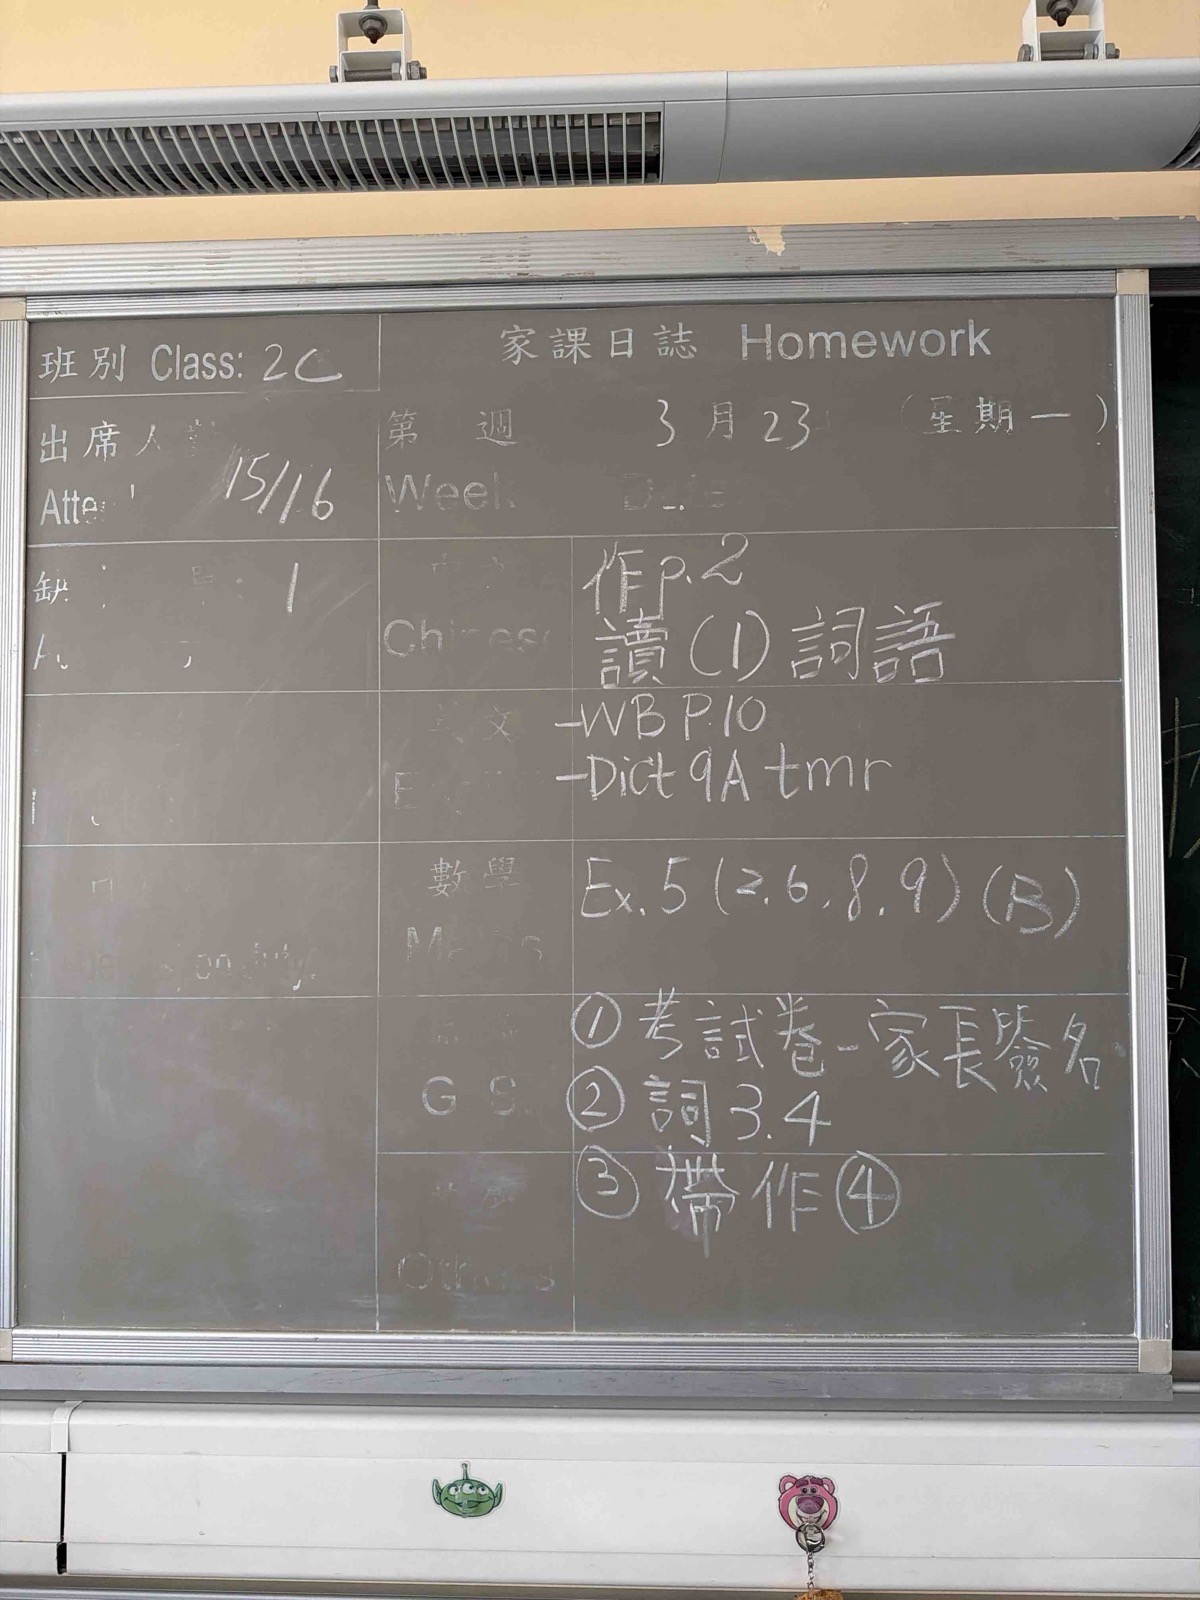 班別 Class: 2C
家課日誌 Homework
出席人
15/16
第 週
3月23
(星期一)
Week
缺
1
Chinese
作p.2
讀(1)詞語
文
-WB P.10
-Dict 9A tmr
數學
Maths
Ex. 5 (2.6.8.9) (B)
G S.
①考試卷-家長簽名
②詞3.4
③帶作④
Others